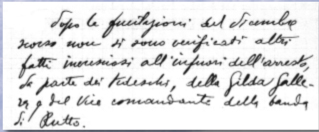 Dopo le fucilazioni del dicembre
scorso non si sono verificati altri
fatti incresciosi all'infuori dell'arresto,
da parte dei tedeschi, della Gilda Galle-
 e del vice comandante della banda
di Rutto.